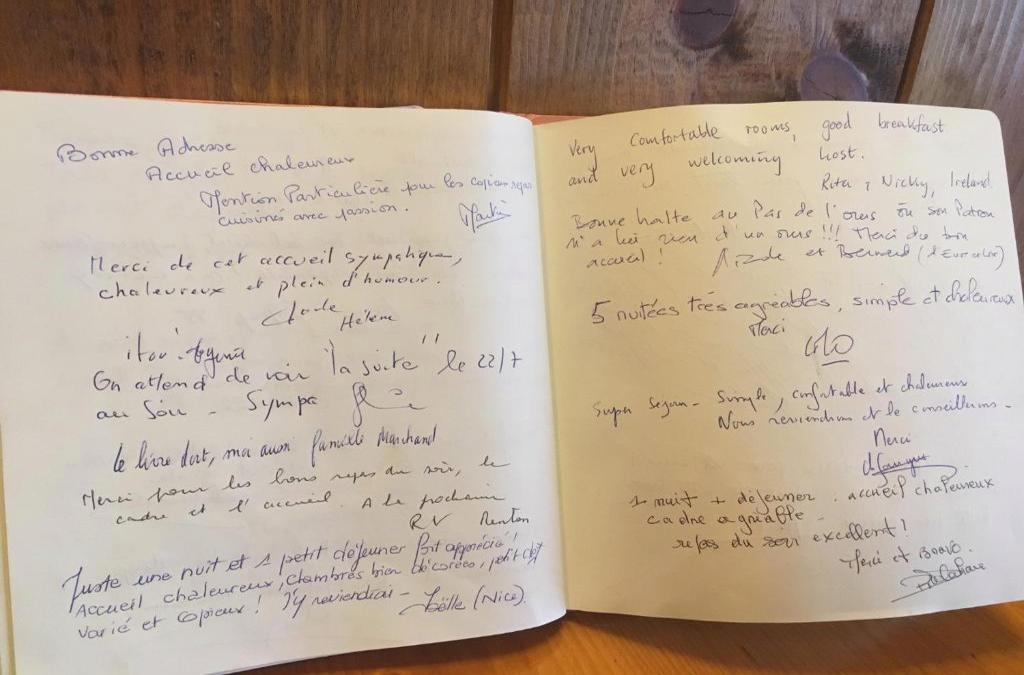 Bonne Adresse
Accueil chaleureux
Mention Particulière pour les copieux repas
cuisinés avec passion.
Merci de cet accueil sympathique,
chaleureux et plein d'humour.
Hélène
On attend de voir "la suite" le 22/7
au soir - Sympa
Le livre dort, moi aussi famille Marchand
Merci pour les bons repas du soir, le
cadre et l'accueil. A la prochaine
RV Menton
Juste une nuit et 1 petit déjeuner fort apprécié!!
Accueil chaleureux, chambres bien décorées, petit dej
varié et copieux! J'y reviendrai - Joëlle (Nice).
Very comfortable rooms, good breakfast
and very welcoming host.
Rita & Nicky, Ireland
Bonne halte au Pas de l'ours où son Patron
n'a lui rien d'un ours!!! Merci du bon
accueil! et Bernard
5 nuitées très agréables, simple et chaleureux
Merci
Super Sejour - Simple, confortable et chaleureux
Nous reviendrons et le conseillerons -
Merci
1 nuit + déjeuner : accueil chaleureux
cadre agréable
repas du soir excellent!
Merci et Bravo.